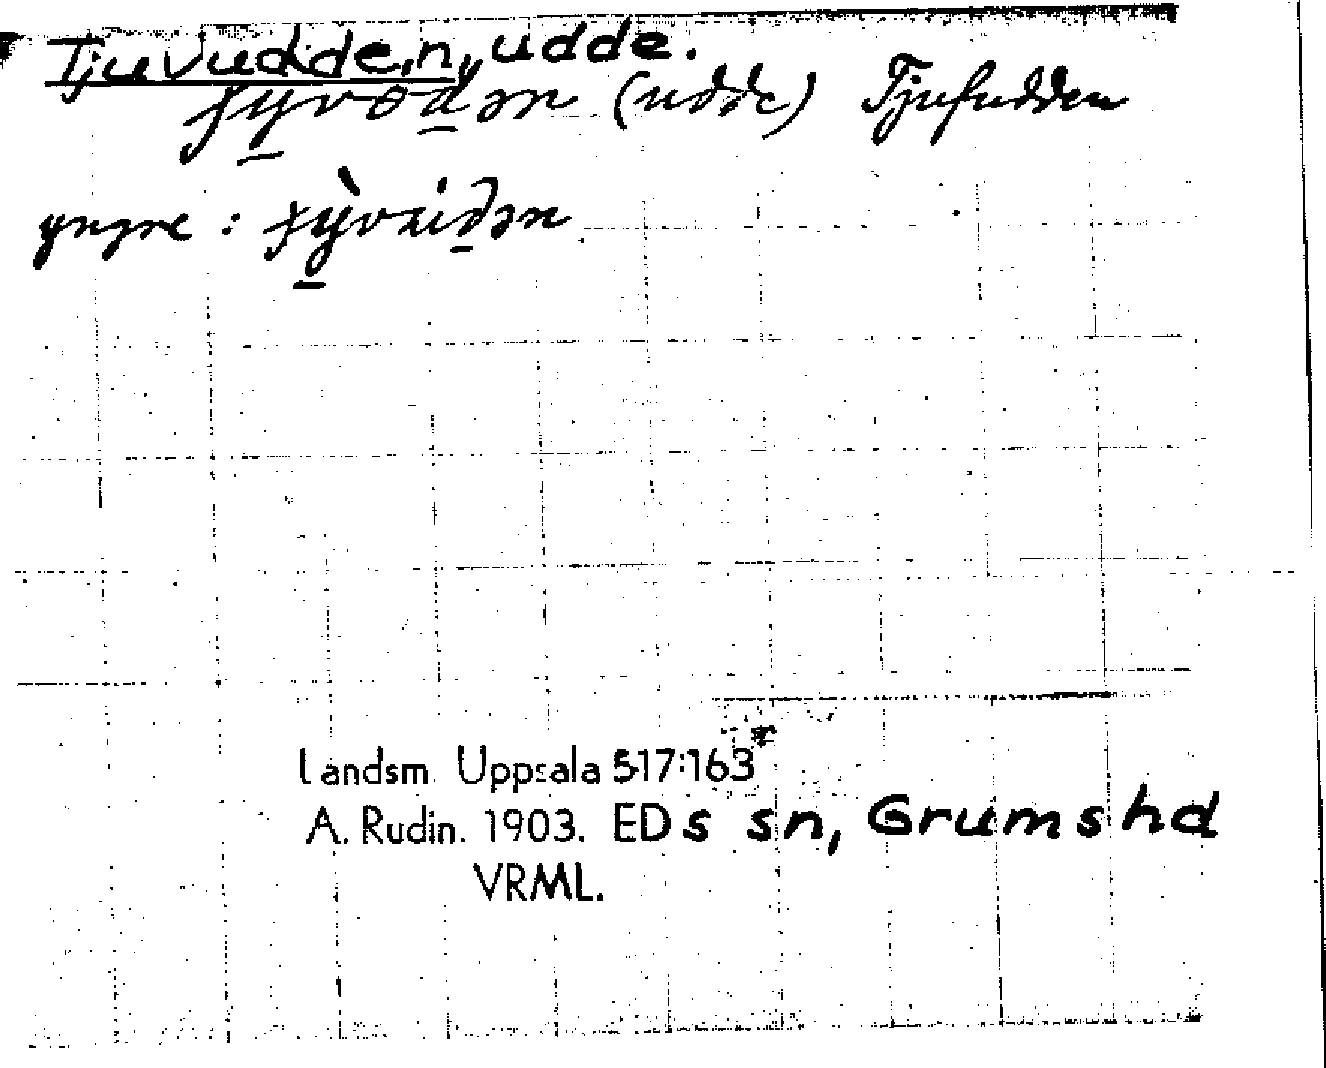 Tjuvudde,n, udde.
(udde) Tjufudden
yngre :
Landsm. Uppsala 517:163
A. Rudin. 1903. EDs sn, Grumshd
VRML.